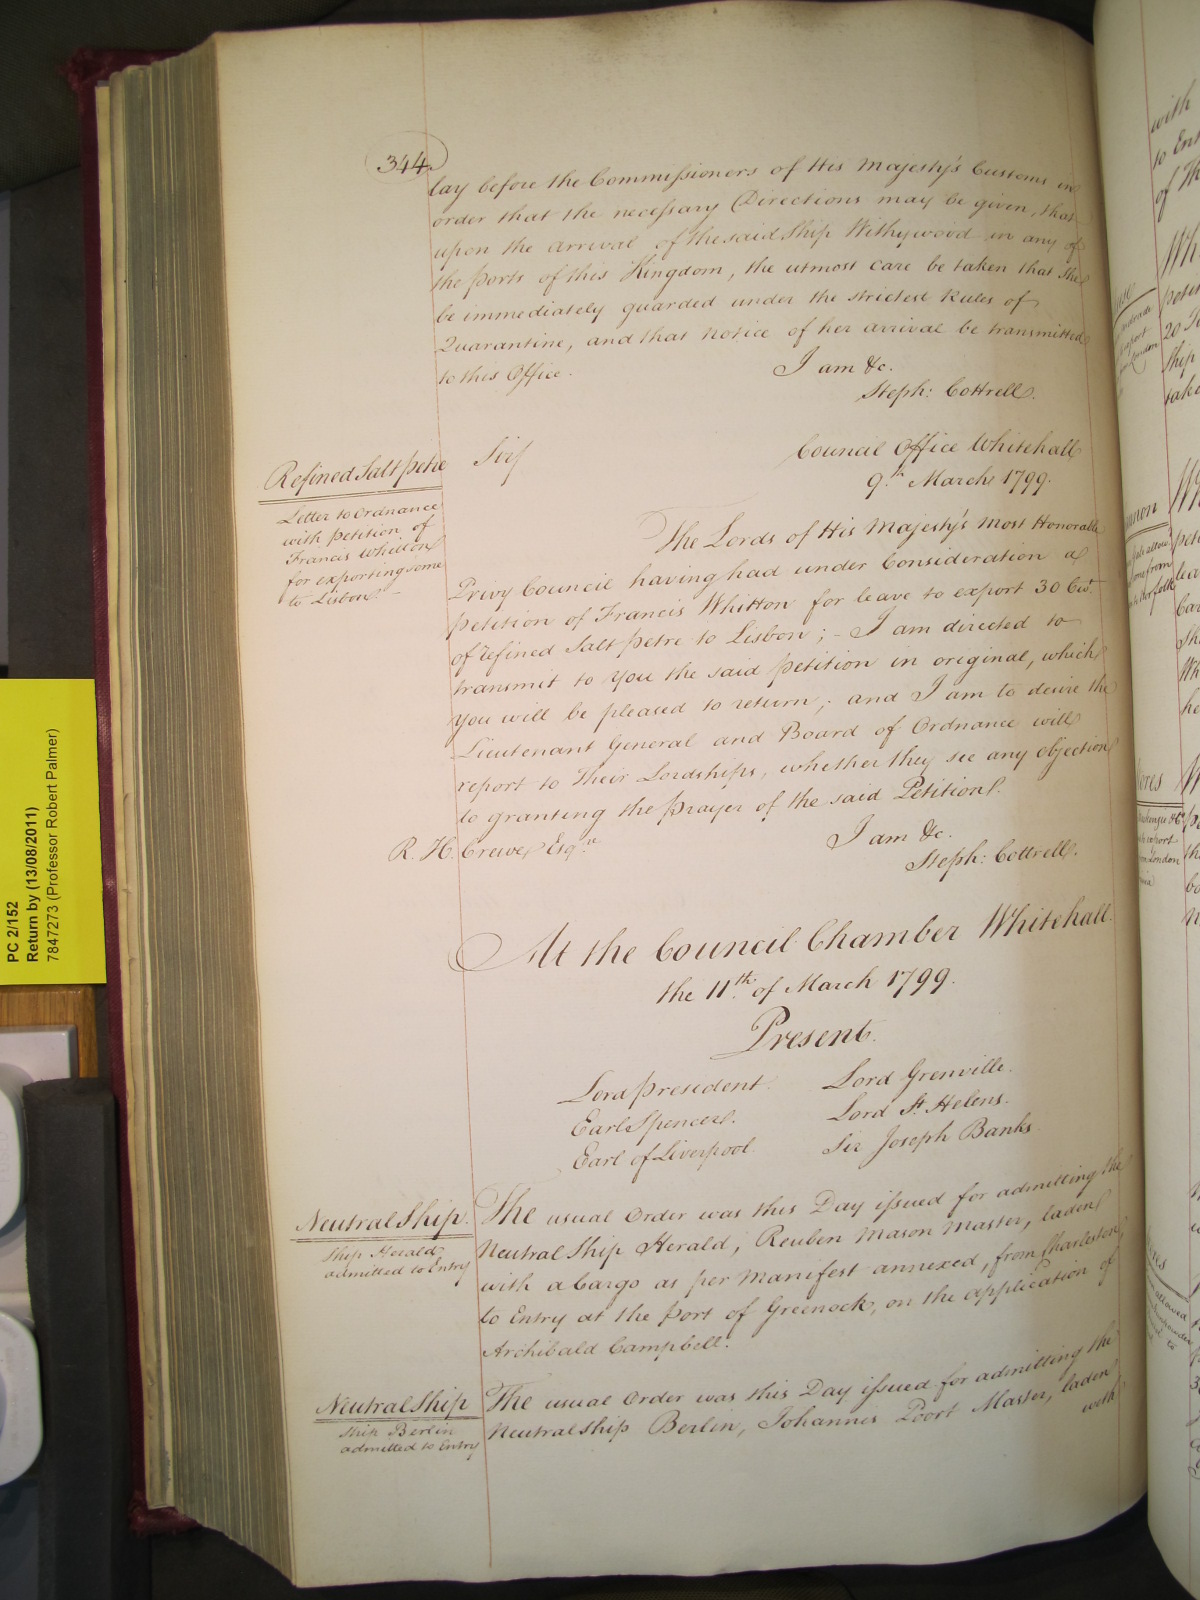 344
lay before the Commissioners of His Majesty's Customs in
order that the necessary Directions may be given, that
upon the arrival of the said Ship Withywood in any of
the Ports of this Kingdom, the utmost care be taken that she
be immediately guarded under the strictest Rules of
Quarantine, and that notice of her arrival be transmitted
to this Office.
I am &c.
Steph: Cottrell.
Refined Salt petre
Letter to Ordnance
with petition of
Francis Whitton
for exporting some
to Lisbon
Sir
Council Office Whitehall
9th March 1799.
The Lords of His Majesty's most Honorable
Privy Council having had under Consideration a
petition of Francis Whitton for leave to export 30 Cwt.
of refined Salt petre to Lisbon; - I am directed to
transmit to You the said petition in original, which
You will be pleased to return; and I am to desire the
Lieutenant General and Board of Ordnance will
report to Their Lordships, whether they see any objection
to granting the prayer of the said Petition.
I am &c.
Steph: Cottrell.
R. H. Crewe Esqre
At the Council Chamber Whitehall.
the 11th of March 1799.
Present.
Lord President. Lord Grenville.
Earl Spencer. Lord St. Helens.
Earl of Liverpool. Sir Joseph Banks.
Neutral Ship.
Ship Herald
admitted to Entry
The usual Order was this Day issued for admitting the
Neutral Ship Herald, Reuben Mason Master, laden
with a Cargo as per Manifest annexed, from Charleston,
to Entry at the port of Greenock, on the application of
Archibald Campbell.
Neutral Ship
Ship Berlin
admitted to Entry
The usual Order was this Day issued for admitting the
Neutral Ship Berlin, Johannes Poort Master, laden
with
PC 2/152
Return by (13/08/2011)
7847273 (Professor Robert Palmer)